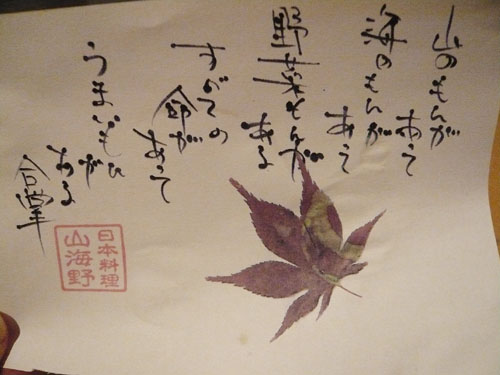 山のもんが
あって
海のもんが
あって
野菜もんが
ある
すべての
命が
あって
うまいもん
が
ある
合掌
日本料理
山海野